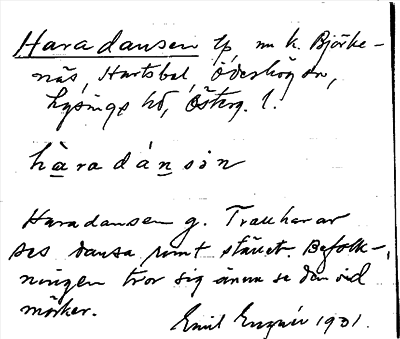 Haradansen tp, nu k. Björke-
näs, Hartsbol, Ödeshög sn,
Lysings hd, Österg. l.
hàradánsòn
Haradansen g. Trall harar
ses dansa runt stället. Befolk-
ningen tror sig ännu se den vid
mörker.
Emil 1901.